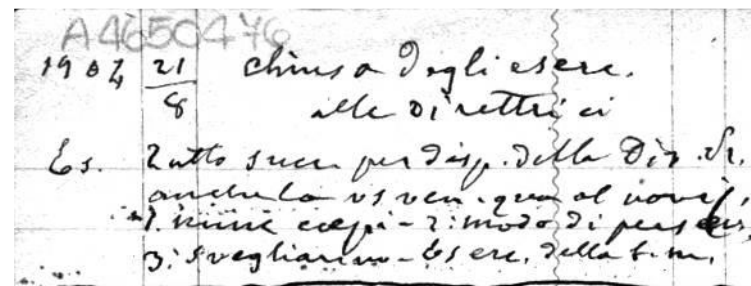 A4650476
1904 21/8 chiusa degli eserc.
alle Direttrici
Es. Tutto succ. per disp. della Div.
anche la vs ven. qua al
1. nunc coepi - 2. modo di
3. svegliarino - Eserc. della b. m.